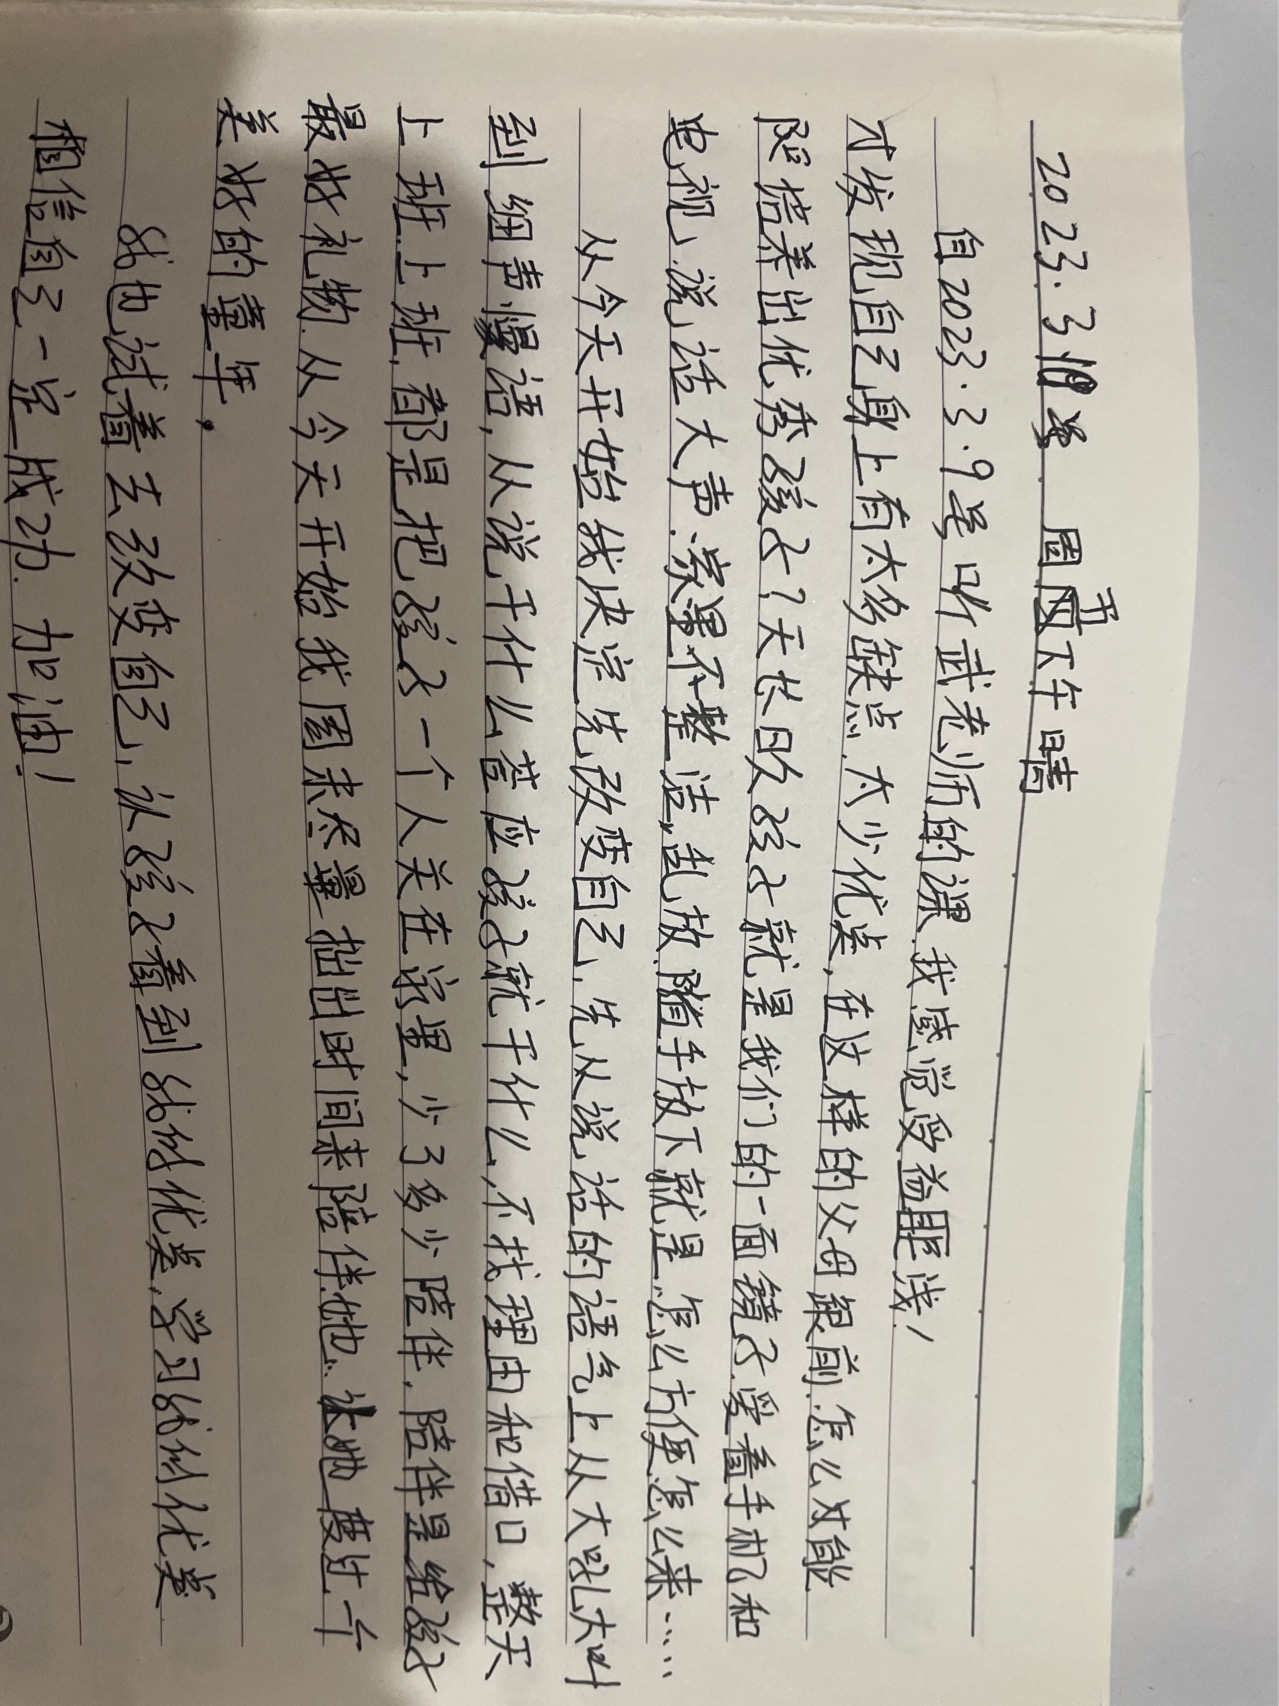 2023.3 18号 周五下午 晴
自2023.3.9号听武老师的课,我感觉受益匪浅!
才发现自己身上有太多缺点,太少优点,在这样的父母跟前.怎么对能
陪培养出优秀孩子?天长日久孩子就是我们的一面镜子.爱看手机和
电视、说话大声.家里不整洁,乱放.随手放下就是.怎么方便怎么来……
从今天开始我决定先改变自己,先从说话的语气上从大吼大叫
到细声慢语,从说干什么答应孩子就干什么,不找理由和借口,整天
上班上班,都是把孩子一个人关在家里,少了多少陪伴,陪伴是给孩子
最好礼物.从今天开始我周末尽量拙出时间来陪伴她.让她度过一个
美好的童年,
我也试着去改变自己,让孩子看到我们优点,学习我们优点
相信自己一定成功.加油!